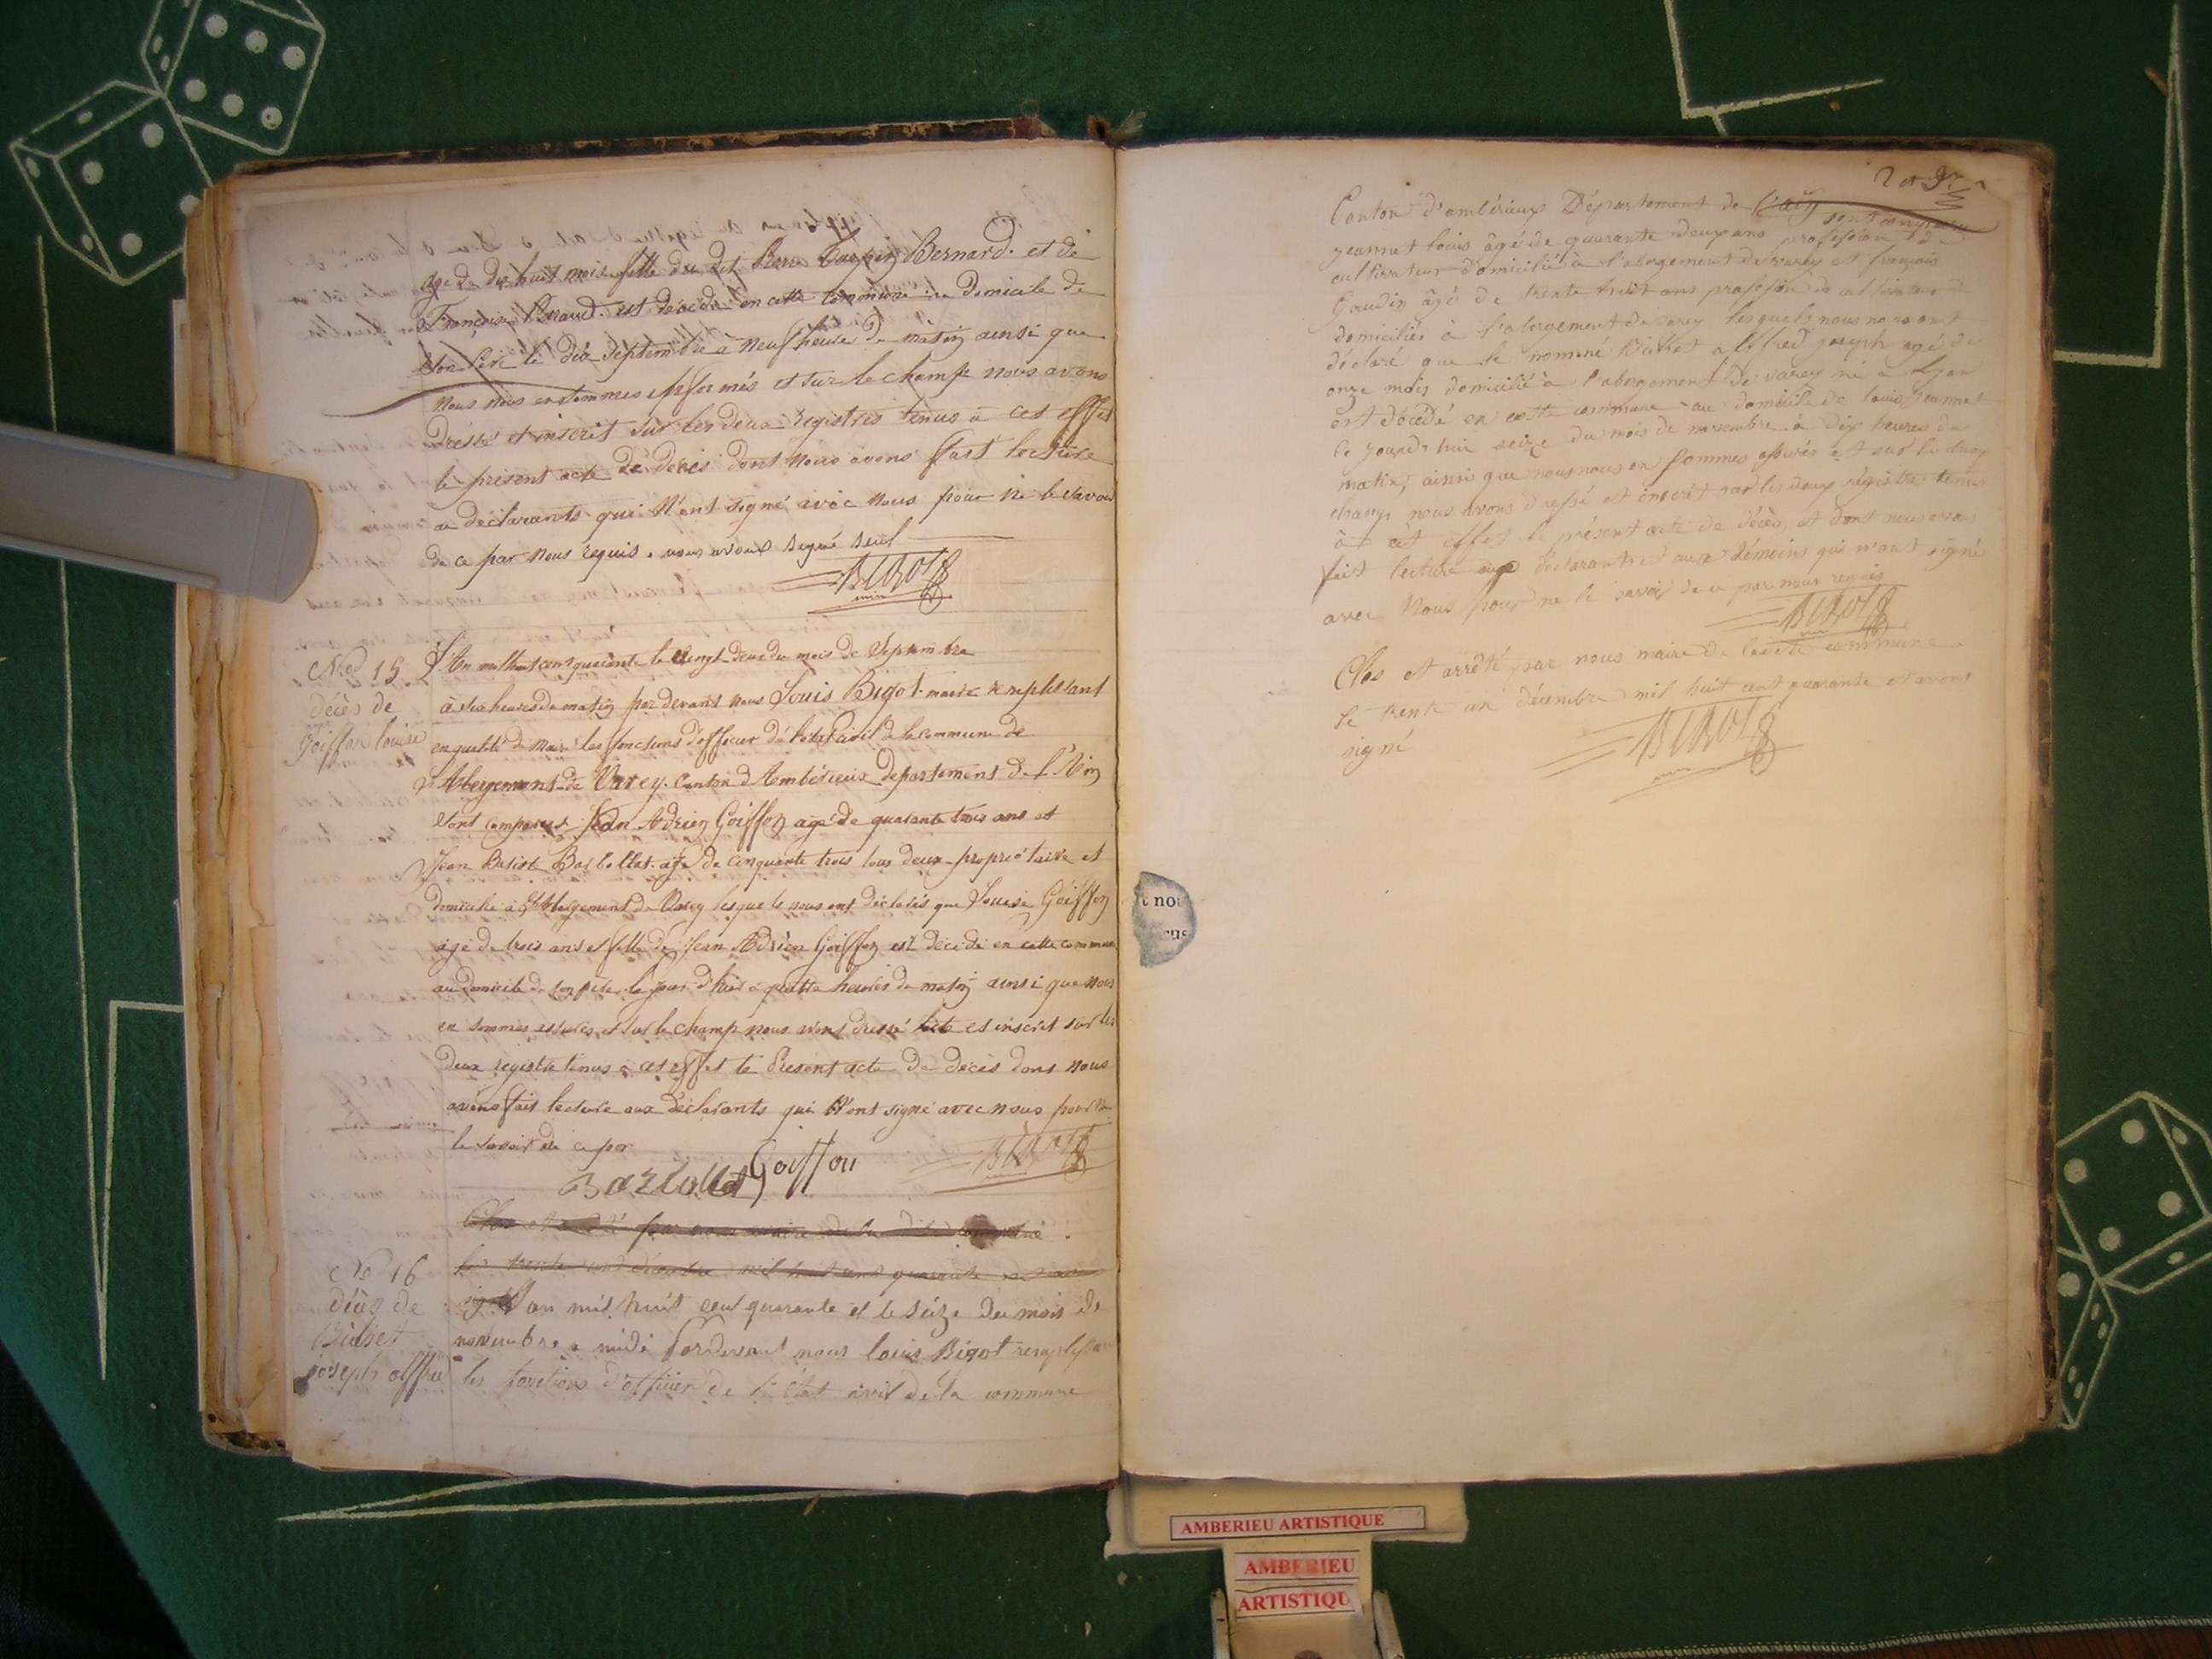 age de dix huit mois fille du dit Pierre Bernard. et de
Françoise est décédé en cette commune au Domicile de
Son Père le dix Septembre à neuf heures du matin ainsi que
nous nous en sommes informés et sur le champ nous avons
dressé et inscrit sur les deux registres tenus à cet effet
le présent acte de décès dont nous avons fait lecture
au déclarants qui N'ont signé avec nous pour ne le savoir
de ce par nous requis. nous avons signé seul
BIGOT
No 15
décès de
Goiffon louise
L'An mil huit cent quarante le vingt-deux du mois de Septembre
à six heures du matin par devant nous Louis Bigot maire remplissant
en qualité de Maire les fonctions d'officier de l'état Civil de la commune de
l'Abergement-de Varey. Canton d'Ambérieux departement de l'Ain
Sont comparus Jean Adrien Goiffon agé de quarante trois ans et
Jean Batiste Barlollet agé de cinquante trois tous deux propriétaire et
domicilié à l'Abergement de Varey lesquels nous ont déclarés que Louise Goiffon
agé de trois ans et fille de Jean Adrien Goiffon est décédé en cette commune
au Domicile de son père le jour d'hier a quatre heures du matin ainsi que nous
en sommes assurés et sur le champ nous avons dressé et inscrit sur les
deux registre tenus à cet effet le Présent acte de décès dont nous
avons fait lecture aux déclarants qui N'ont signé avec nous pour ne
le savoir de ce par
Barlollet Goiffon BIGOT
Clos et arrêté par nous maire de la dite commune
le trente un décembre mil huit cent quarante et avons
signé
No 16
décès de
Bichet
joseph alffred
L'an mil huit cent quarante et le seize du mois de
novembre a midi Pardevant nous louis Bigot remplissant
les fonctions d'officier de l'état civil de la commune
2 et 9
Canton d'ambérieux Département de l'ain sont comparu
jeannet louis âgé de quarante deux ans profession de
cultivateur domicilié à l'abergement de varey et françois
Goudin âgé de trente huit ans profession de cultivateur
domiciliés à l'abergement de varey lesquels nous ont
déclaré que le nommé Bichet alffred joseph agé de
onze mois domicilié à l'abergement de varey né a Lyon
est décédé en cette commune au domicile de louis jeannet
le jourd'hui seize du mois de novembre à dix heures du
matin, ainsi que nous nous en sommes assurés et sur le
champ nous avons dressé et inscrit sur les deux régistres tenus
à cet effet le présent acte de décès, et dont nous avons
fait lecture aux déclarants et aux témoins qui n'ont signé
avec Nous pour ne le savoir de ce par nous requis
BIGOT
Clos et arrêté par nous maire de la dite commune
le trente un décembre mil huit cent quarante et avons
signé BIGOT
t no
cus
AMBERIEU ARTISTIQUE
AMBERIEU
ARTISTIQU